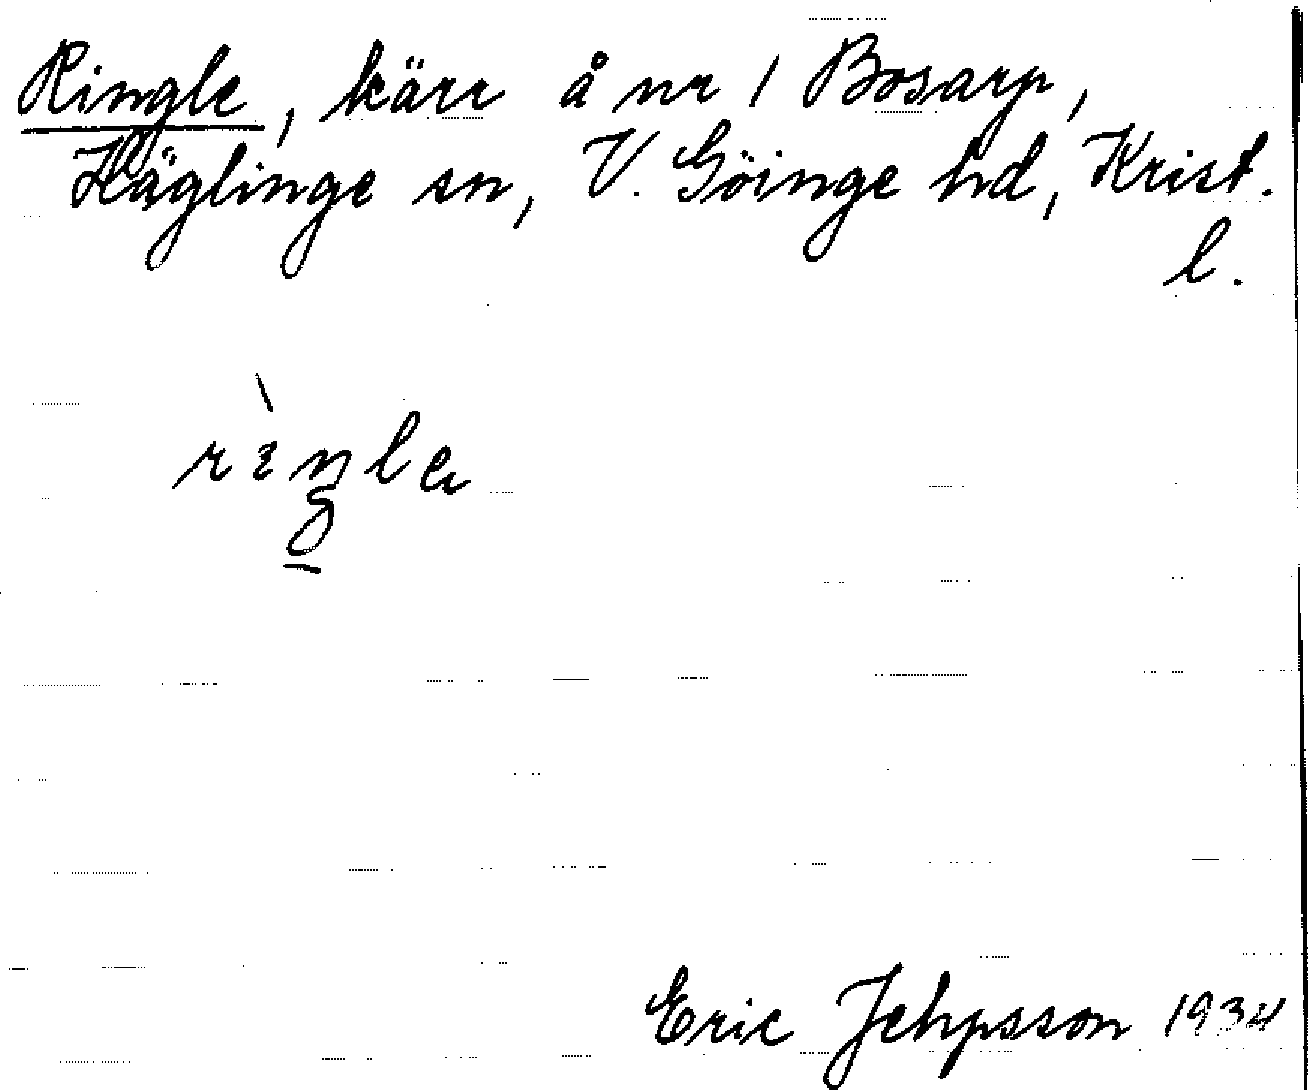 Ringle, kärr å nr 1 Bosarp,
Häglinge sn, V. Göinge hd, Krist.
l.
Eric Jehpsson 1934